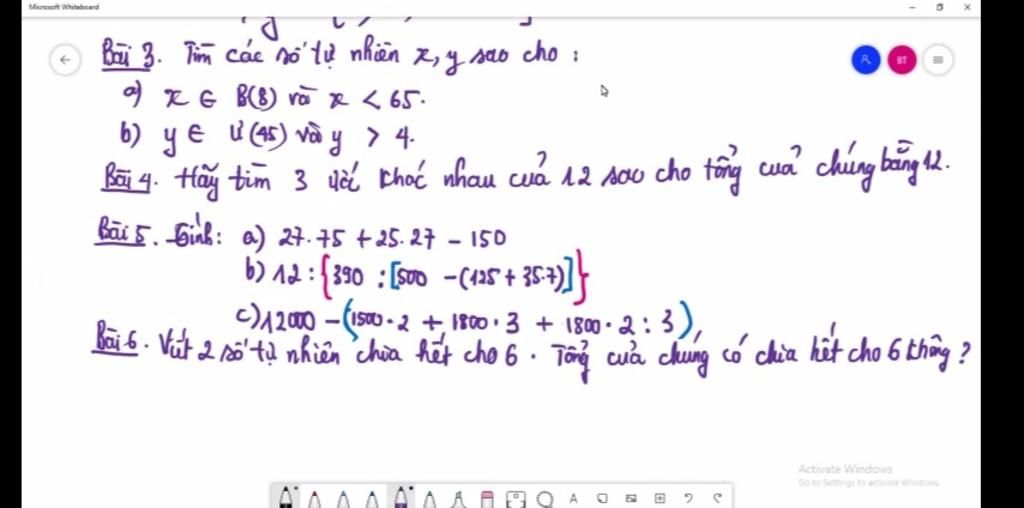 Microsoft Whiteboard
Bài 3. Tìm các số tự nhiên x, y sao cho :
BT
a) x ∈ B(8) và x < 65.
b) y ∈ Ư(45) và y > 4.
Bài 4. Hãy tìm 3 ước khác nhau của 12 sao cho tổng của chúng bằng 12.
Bài 5. Tính: a) 27.75 + 25.27 - 150
b) 12 : {390 : [500 - (125 + 35.7)]}
c) 12000 - (1500.2 + 1800.3 + 1800.2 : 3)
Bài 6. Viết 2 số tự nhiên chia hết cho 6. Tổng của chúng có chia hết cho 6 không ?
Activate Windows
Go to Settings to activate Windows.
A